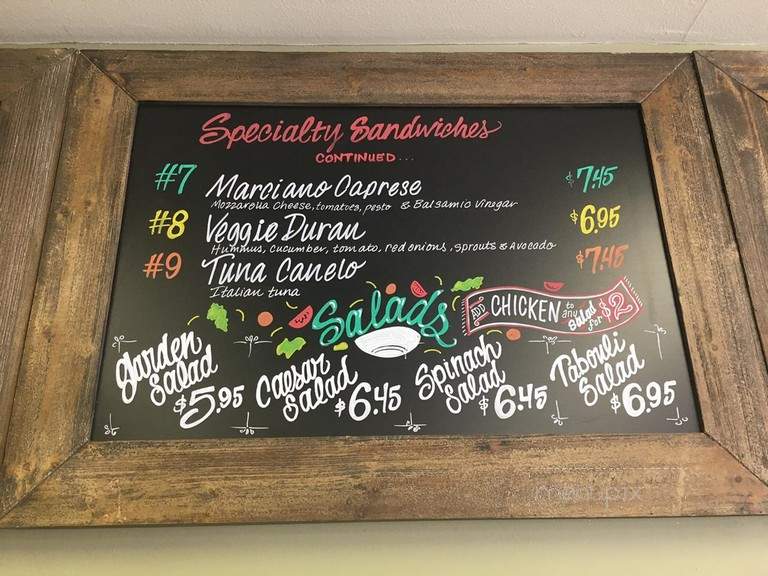 Specialty Sandwiches
CONTINUED...
#7 Marciano Caprese $7.45
Mozzarella Cheese, tomatoes, pesto & Balsamic Vinegar
#8 Veggie Duran $6.95
Hummus, cucumber, tomato, red onions, sprouts & Avocado
#9 Tuna Canelo $7.45
Italian tuna
Salads
ADD CHICKEN to any salad for $2
Garden Salad $5.95
Caesar Salad $6.45
Spinach Salad $6.45
Tabouli Salad $6.95
menupix